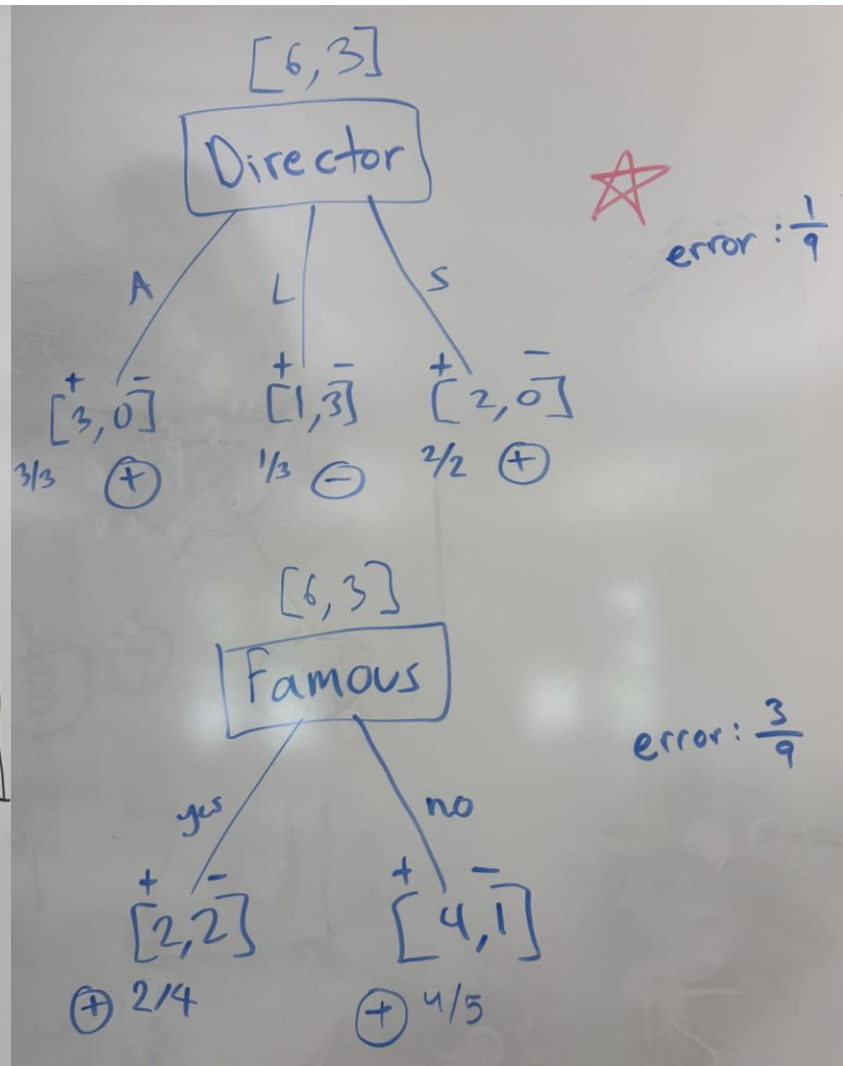 [6,3]
Director
error: 1/9
A L S
+ - + - + -
[3,0] [1,3] [2,0]
3/3 + 1/3 - 2/2 +
[6,3]
Famous
error: 3/9
yes no
+ - + -
[2,2] [4,1]
+ 2/4 + 4/5